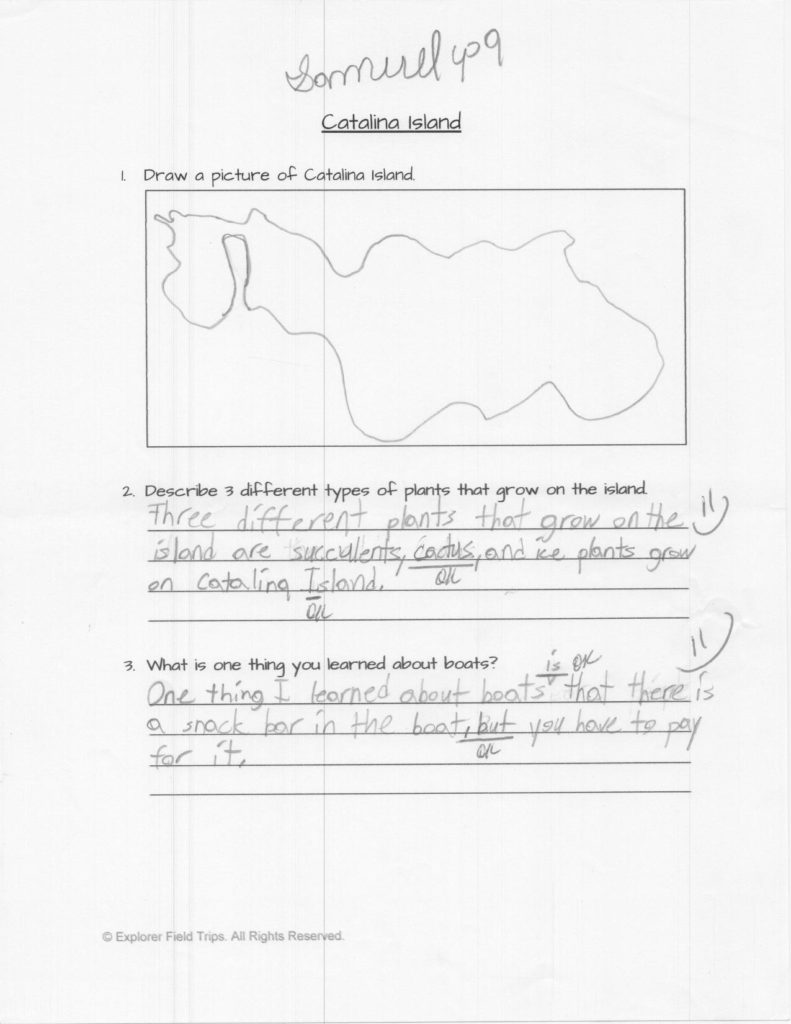 Samuel 409
Catalina Island
1. Draw a picture of Catalina Island.
2. Describe 3 different types of plants that grow on the island.
Three different plants that grow on the
island are succulents, cactus, and ice plants grow
OK
on Catalina Island.
OK
3. What is one thing you learned about boats?
is OK
One thing I learned about boats that there is
a snack bar in the boat, but you have to pay
OK
for it.
© Explorer Field Trips. All Rights Reserved.